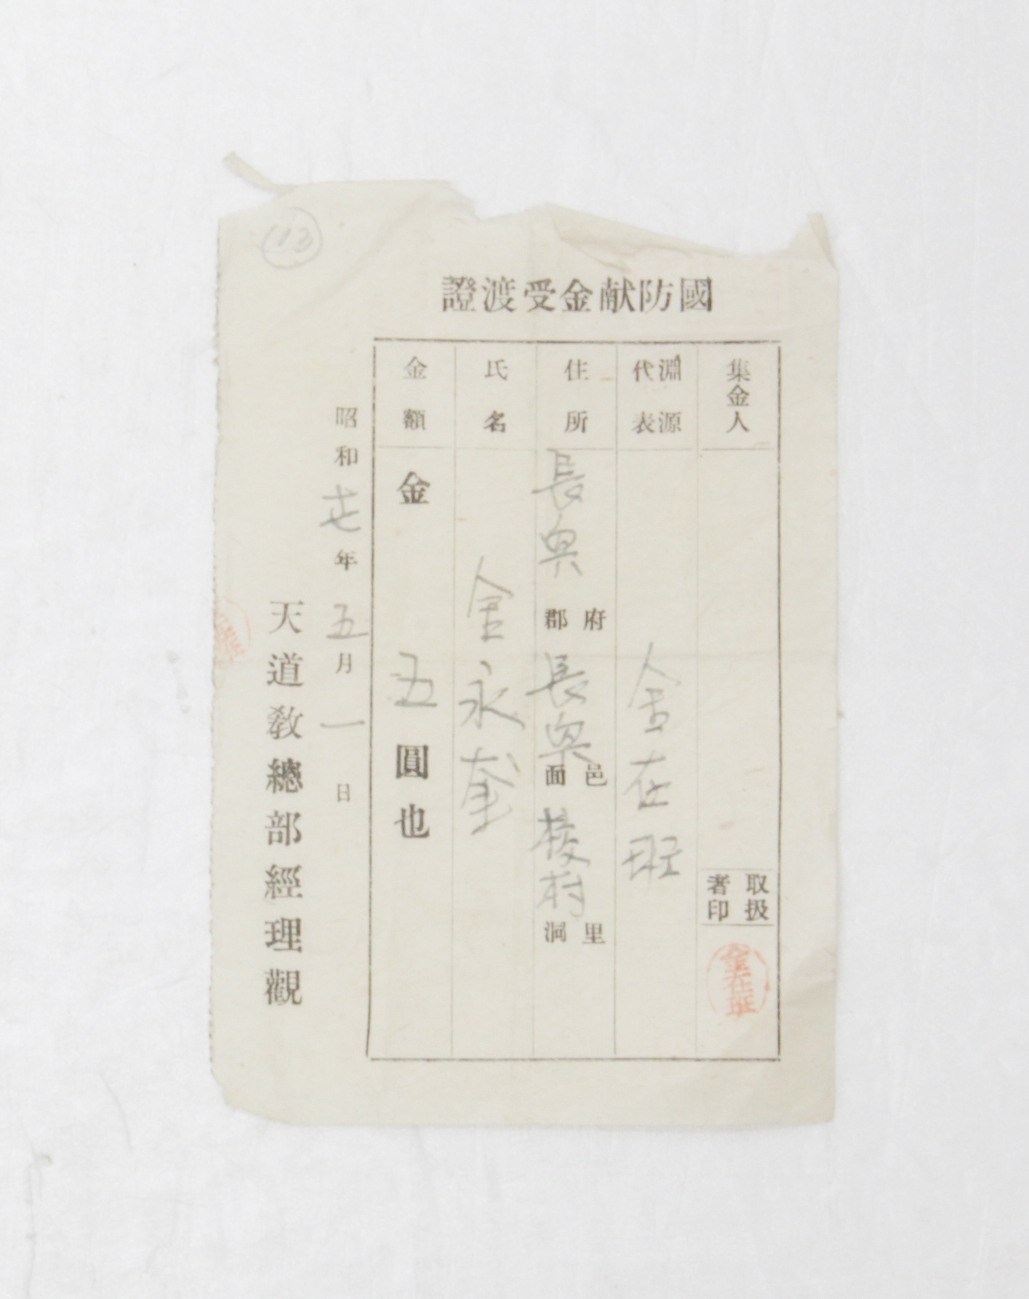 國防献金受渡證
集金人
取扱者印
金在班
淵源代表
金在班
住所
長興 府郡 長興 邑面 校村 里洞
氏名
金永奎
金額
金 五 圓也
昭和 十七 年 五 月 一 日
天道敎總部經理觀